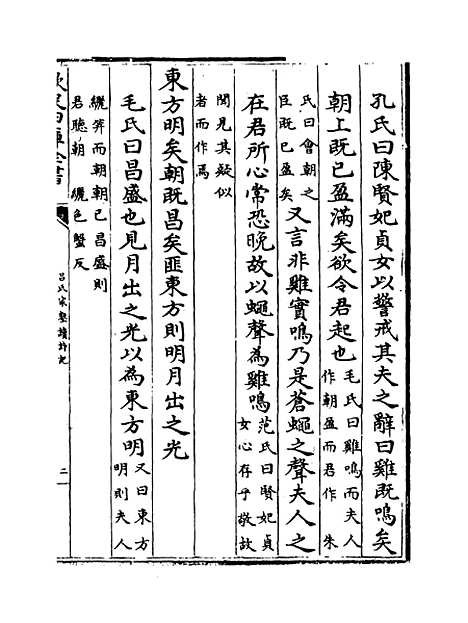 孔氏曰陳賢妃貞女以警戒其夫之辭曰雞既鳴矣
朝上既已盈滿矣欲令君起也毛氏曰雞鳴而夫人作朝盈而君作 朱
氏曰會朝之臣既已盈矣又言非雞實鳴乃是蒼蠅之聲夫人之
在君所心常恐晚故以蠅聲為雞鳴范氏曰賢妃貞女心存乎敬故
聞見其疑似者而作焉
東方明矣朝既昌矣匪東方則明月出之光
毛氏曰昌盛也見月出之光以為東方明又曰東方明則夫人
纚笄而朝朝已昌盛則君聽朝 纚色蟹反
欽定四庫全書
呂氏家塾讀詩記
二